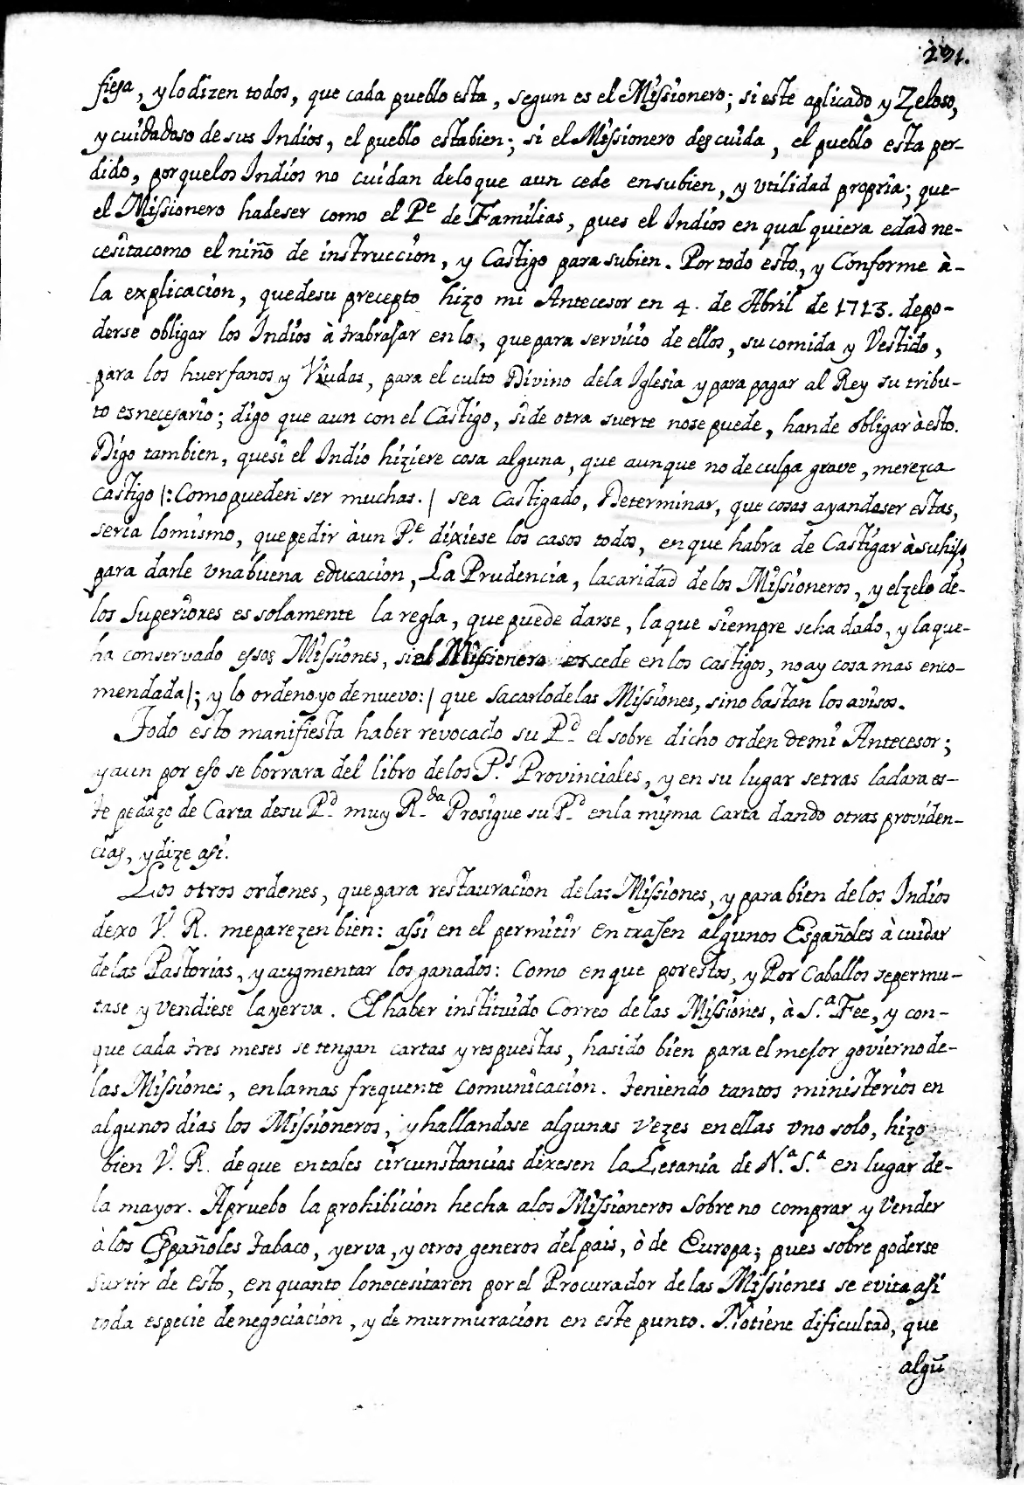 291.
fiesa, y lo dizen todos, que cada pueblo esta, segun es el Missionero; si este aplicado y Zeloso,
y cuidadoso de sus Indios, el pueblo esta bien; si el Missionero descuida, el pueblo esta per-
dido, por que los Indios no cuidan de lo que aun cede en su bien, y utilidad propria; que-
el Missionero ha de ser como el Pe de Familias, pues el Indios en qual quiera edad ne-
cesita como el niño de instruccion, y Castigo para su bien. Por todo esto, y Conforme à-
la explicacion, que de su precepto hizo mi Antecesor en 4. de Abril de 1713. de po-
derse obligar los Indios à trabrajar en lo, que para servicio de ellos, su comida y Vestido,
para los huerfanos y Viudas, para el culto Divino de la Iglesia y para pagar al Rey su tribu-
to es necesario; digo que aun con el Castigo, si de otra suerte no se puede, han de obligar à esto.
Digo tambien, que si el Indio hiziere cosa alguna, que aunque no de culpa grave, merezca
castigo |: Como pueden ser muchas. | sea Castigado, Determinar, que cosas ayan de ser estas,
seria lo mismo, que pedir à un Pe. dixiese los casos todos, en que habra de Castigar à su hijo,
para darle una buena educacion, La Prudencia, la caridad de los Missioneros, y el zelo de-
los Superiores es solamente la regla, que puede darse, la que siempre se ha dado, y la que-
ha conservado essos Missiones, si el Missionero excede en los castigos, no ay cosa mas enco-
mendada |; y lo ordeno yo de nuevo: | que Sacarlo de las Missiones, si no bastan los avisos.
Todo esto manifiesta haber revocado su Pd. el sobre dicho orden de mi Antecesor;
y aun por eso se borrara del libro de los Ps. Provinciales, y en su lugar se tras ladara es-
te pedazo de Carta de su Pd. muy Rda. Prosigue su Pd. en la misma Carta dando otras providen-
cias, y dize asi.
Los otros ordenes, que para restauracion de las Missiones, y para bien de los Indios
dexo V. R. me parezen bien: assi en el permitir entrasen algunos Españoles à cuidar
de las Pastorias, y augmentar los ganados: Como en que por estos, y Por Caballos se permu-
tase y vendiese la yerva. El haber instituido Correo de las Missiones, à S.a Fee, y con-
que cada tres meses se tengan cartas y respuestas, ha sido bien para el mejor govierno de-
las Missiones, en la mas frequente comunicacion. Teniendo tantos ministerios en
algunos dias los Missioneros, y hallandose algunas vezes en ellas uno solo, hizo
bien V. R. de que en tales circunstancias dixesen la Letania de N.a S.a en lugar de-
la mayor. Apruebo la prohibicion hecha a los Missioneros sobre no comprar y Vender
à los Españoles Tabaco, yerva, y otros generos del pais, ò de Europa; pues sobre poderse
surtir de esto, en quanto lo necesitaren por el Procurador de las Missiones se evita asi
toda especie de negociacion, y de murmuracion en este punto. No tiene dificultad, que
algũ